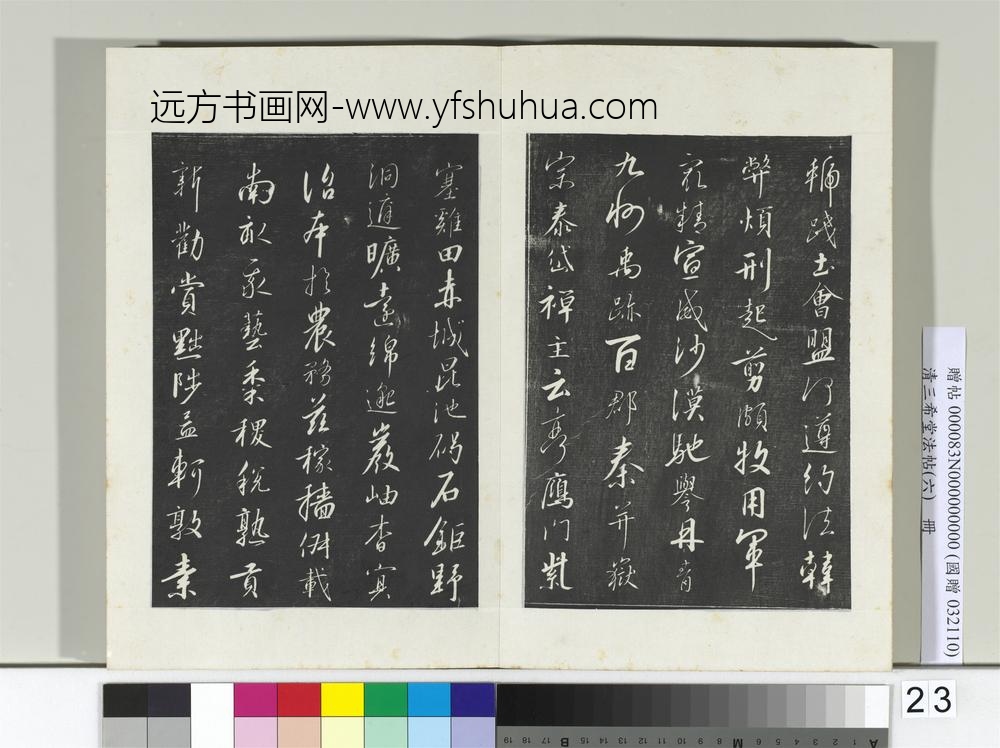 远方书画网-www.yfshuhua.com
虢踐土會盟何遵約法韓
弊煩刑起剪頗牧用軍
最精宣威沙漠馳譽丹青
九州禹跡百郡秦并嶽
宗泰岱禪主云亭鴈門紫
塞雞田赤城昆池碣石鉅野
洞庭曠遠綿邈巖岫杳冥
治本於農務茲稼穡俶載
南畝我藝黍稷稅熟貢
新勸賞黜陟孟軻敦素
贈帖 000083N000000000 (國贈 032110)
清三希堂法帖(六) 冊
23
A 1 2 3 4 5 6 M 8 9 10 11 12 13 14 15 B 17 18 19